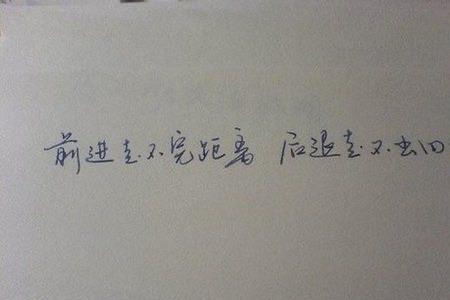 前进走不完距离 后退走不出回